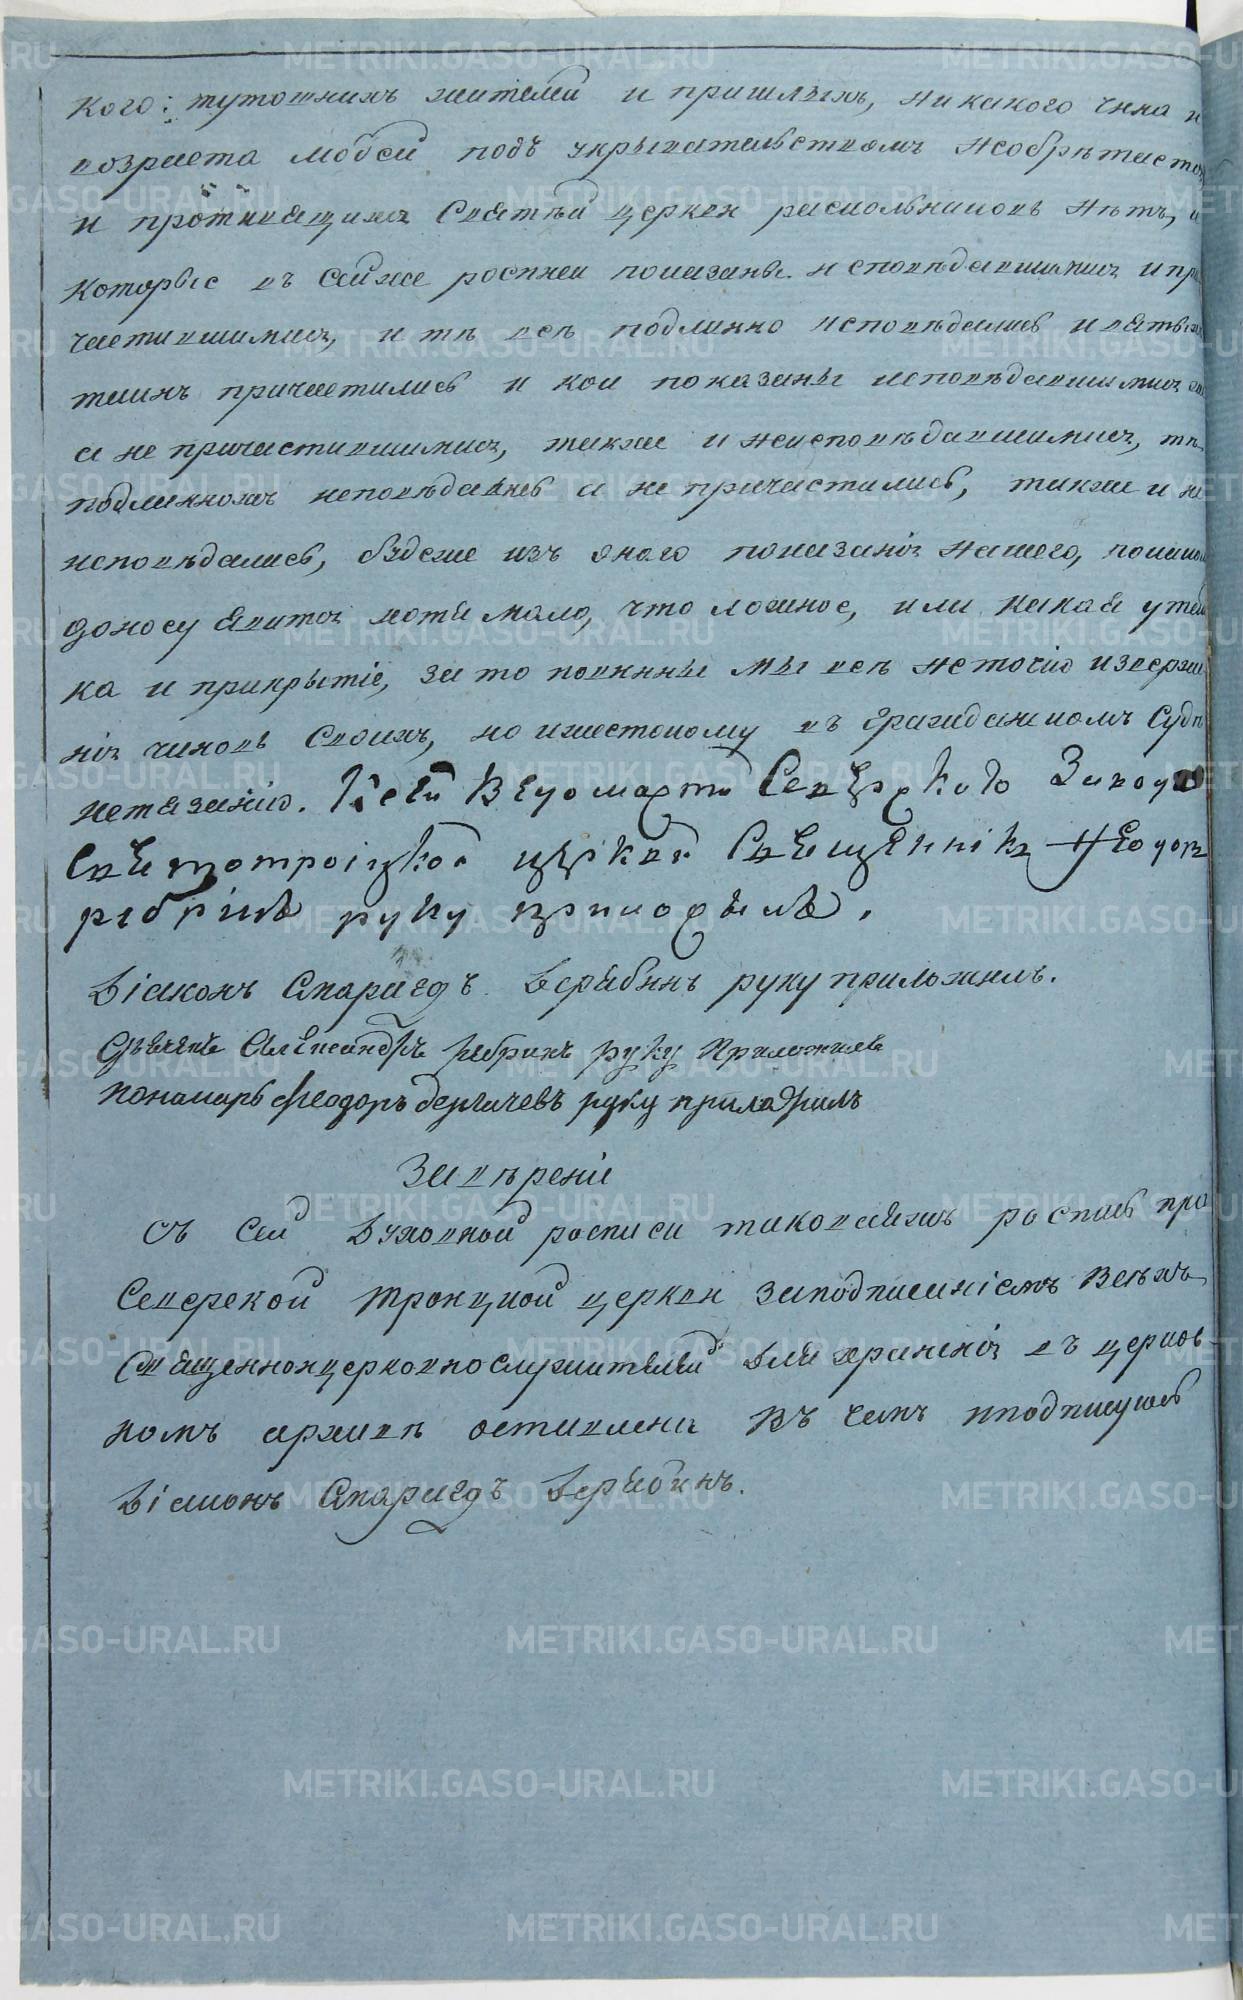 кого: тутошнихъ жителей и пришлыхъ, никакого чина и
возраста людей подъ укрывательствомъ необрѣтается
и противящихся Святѣй церкви раскольниковъ нѣтъ, а
которые въ сей же росписи показаны исповѣдавшимися и при
частившимися, и тѣ всѣ подлинно исповѣдались и святыхъ
таинъ причастились и кои показаны исповѣдавшимися
а не причастившимися, также и неисповѣдавшимися, тѣ
подлинножъ исповѣдались а не причастились, также и не
исповѣдались, будеже изъ оного показанія нашего, по
доносу явится хотя мало, что ложное, или какая утай
ка и прикрытіе, за то повинны мы всѣ неточію изверже
нія чиновъ своихъ, но и жестокому въ гражданскомъ судѣ
истязанію. Ксей Ведомасти Севѣрскаго Завода
Свѣтотроіцкой цѣркви Свѣщенникъ Феодоръ
рябрінъ руку приложилъ.
Діаконъ Спаридъ Дерябинъ руку приложилъ.
Дьячекъ Александръ рябринъ руку приложилъ
понамарь феодоръ дергачевъ руку приложилъ
Завѣреніе
съ сей духовной росписи таковаяжъ роспись при
Северской Троицкой церкви заподписаніемъ всѣхъ
Священноицерковнослужителей для храненія въ церков
номъ архивѣ оставлена въ чемъ иподписуюсь
Діаконъ Спаридъ Дерябинъ.
METRIKI.GASO-URAL.RU